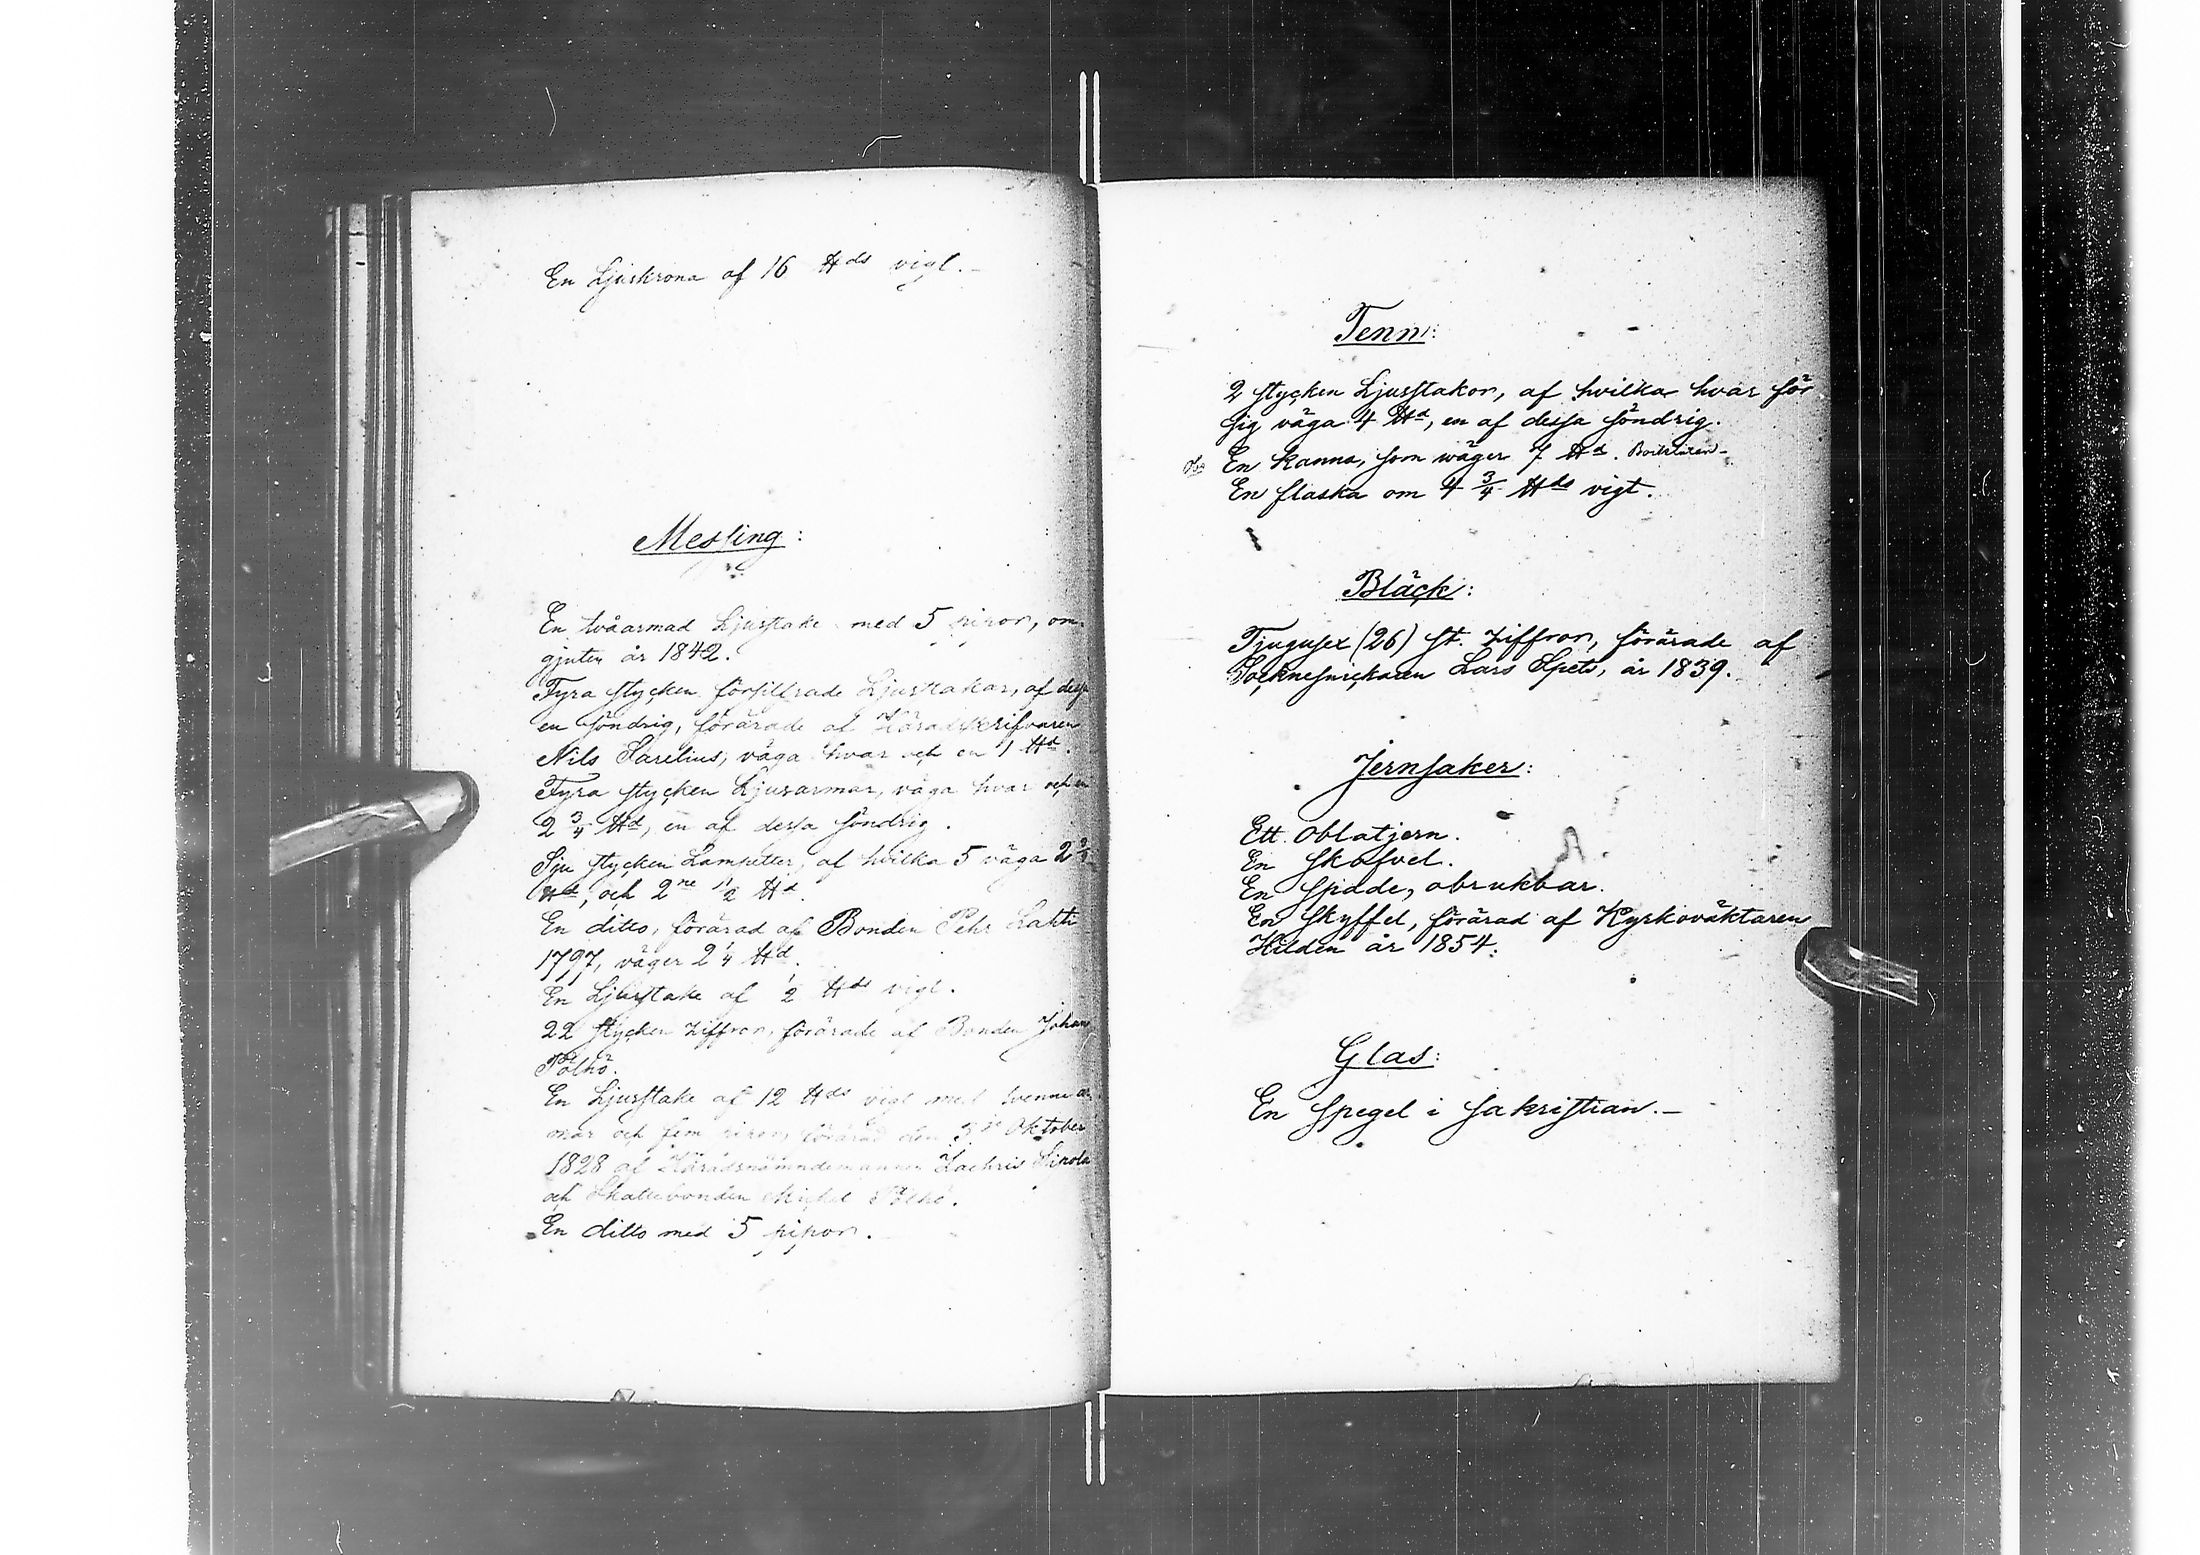 En Ljuskrona af 16 ℔ds vigt.
Messing:
En tvåarmad Ljusstake med 5 pipor, om-
gjuten år 1842.
Fyra stycken försilfrade Ljusstakar, af dessa
en söndrig, förärade af Häradsskrifvaren
Nils Sarelius, väga hvar och en 1 ℔d.
Fyra stycken Ljusarmar, väga hvar och en
2 3/4 ℔d, en af dessa söndrig.
Sju stycken Lampetter, af hvilka 5 väga 2 3/4
℔d, och 2ne 1/2 ℔d.
En ditto, förärad af Bonden Pehr Lahti
1797, väger 2 1/4 ℔d.
En Ljusstake af 1/2 ℔ds vigt.
22 stycken Ziffror, förärade af Bonden Johan
Pölhö.
En Ljusstake af 12 ℔ds vigt med tvenne ar-
mar och fem pipor, förärad den 3de Oktober
1828 af Häradsnämndemannen Zachris
och Skattebonden Michel Pölhö.
En ditto med 5 pipor.
Tenn:
2 stycken Ljusstakor, af hvilka hvar för
sig väga 4 ℔d, en af dessa söndrig.
En kanna, som wäger 7 ℔d. Bortstulen
En flaska om 4 3/4 ℔ds vigt.
Bläck:
Tjugusex (26) st. Ziffror, förärade af
Socknesnickaren Lars Spets, år 1839.
Jernsaker:
Ett Oblatjern.
En Skofvel.
En Spade, obrukbar.
En Skyffel, förärad af Kyrkoväktaren
Hilden år 1854.
Glas:
En spegel i Sakristian.